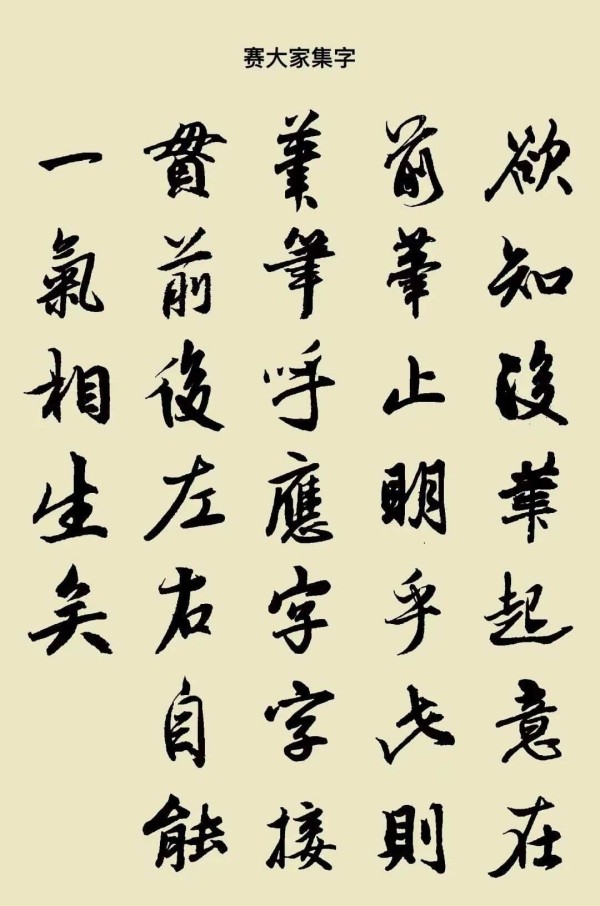 赛大家集字
欲知後筆起意在
前筆止明乎此則
筆筆呼應字字接
貫前後左右自能
一氣相生矣